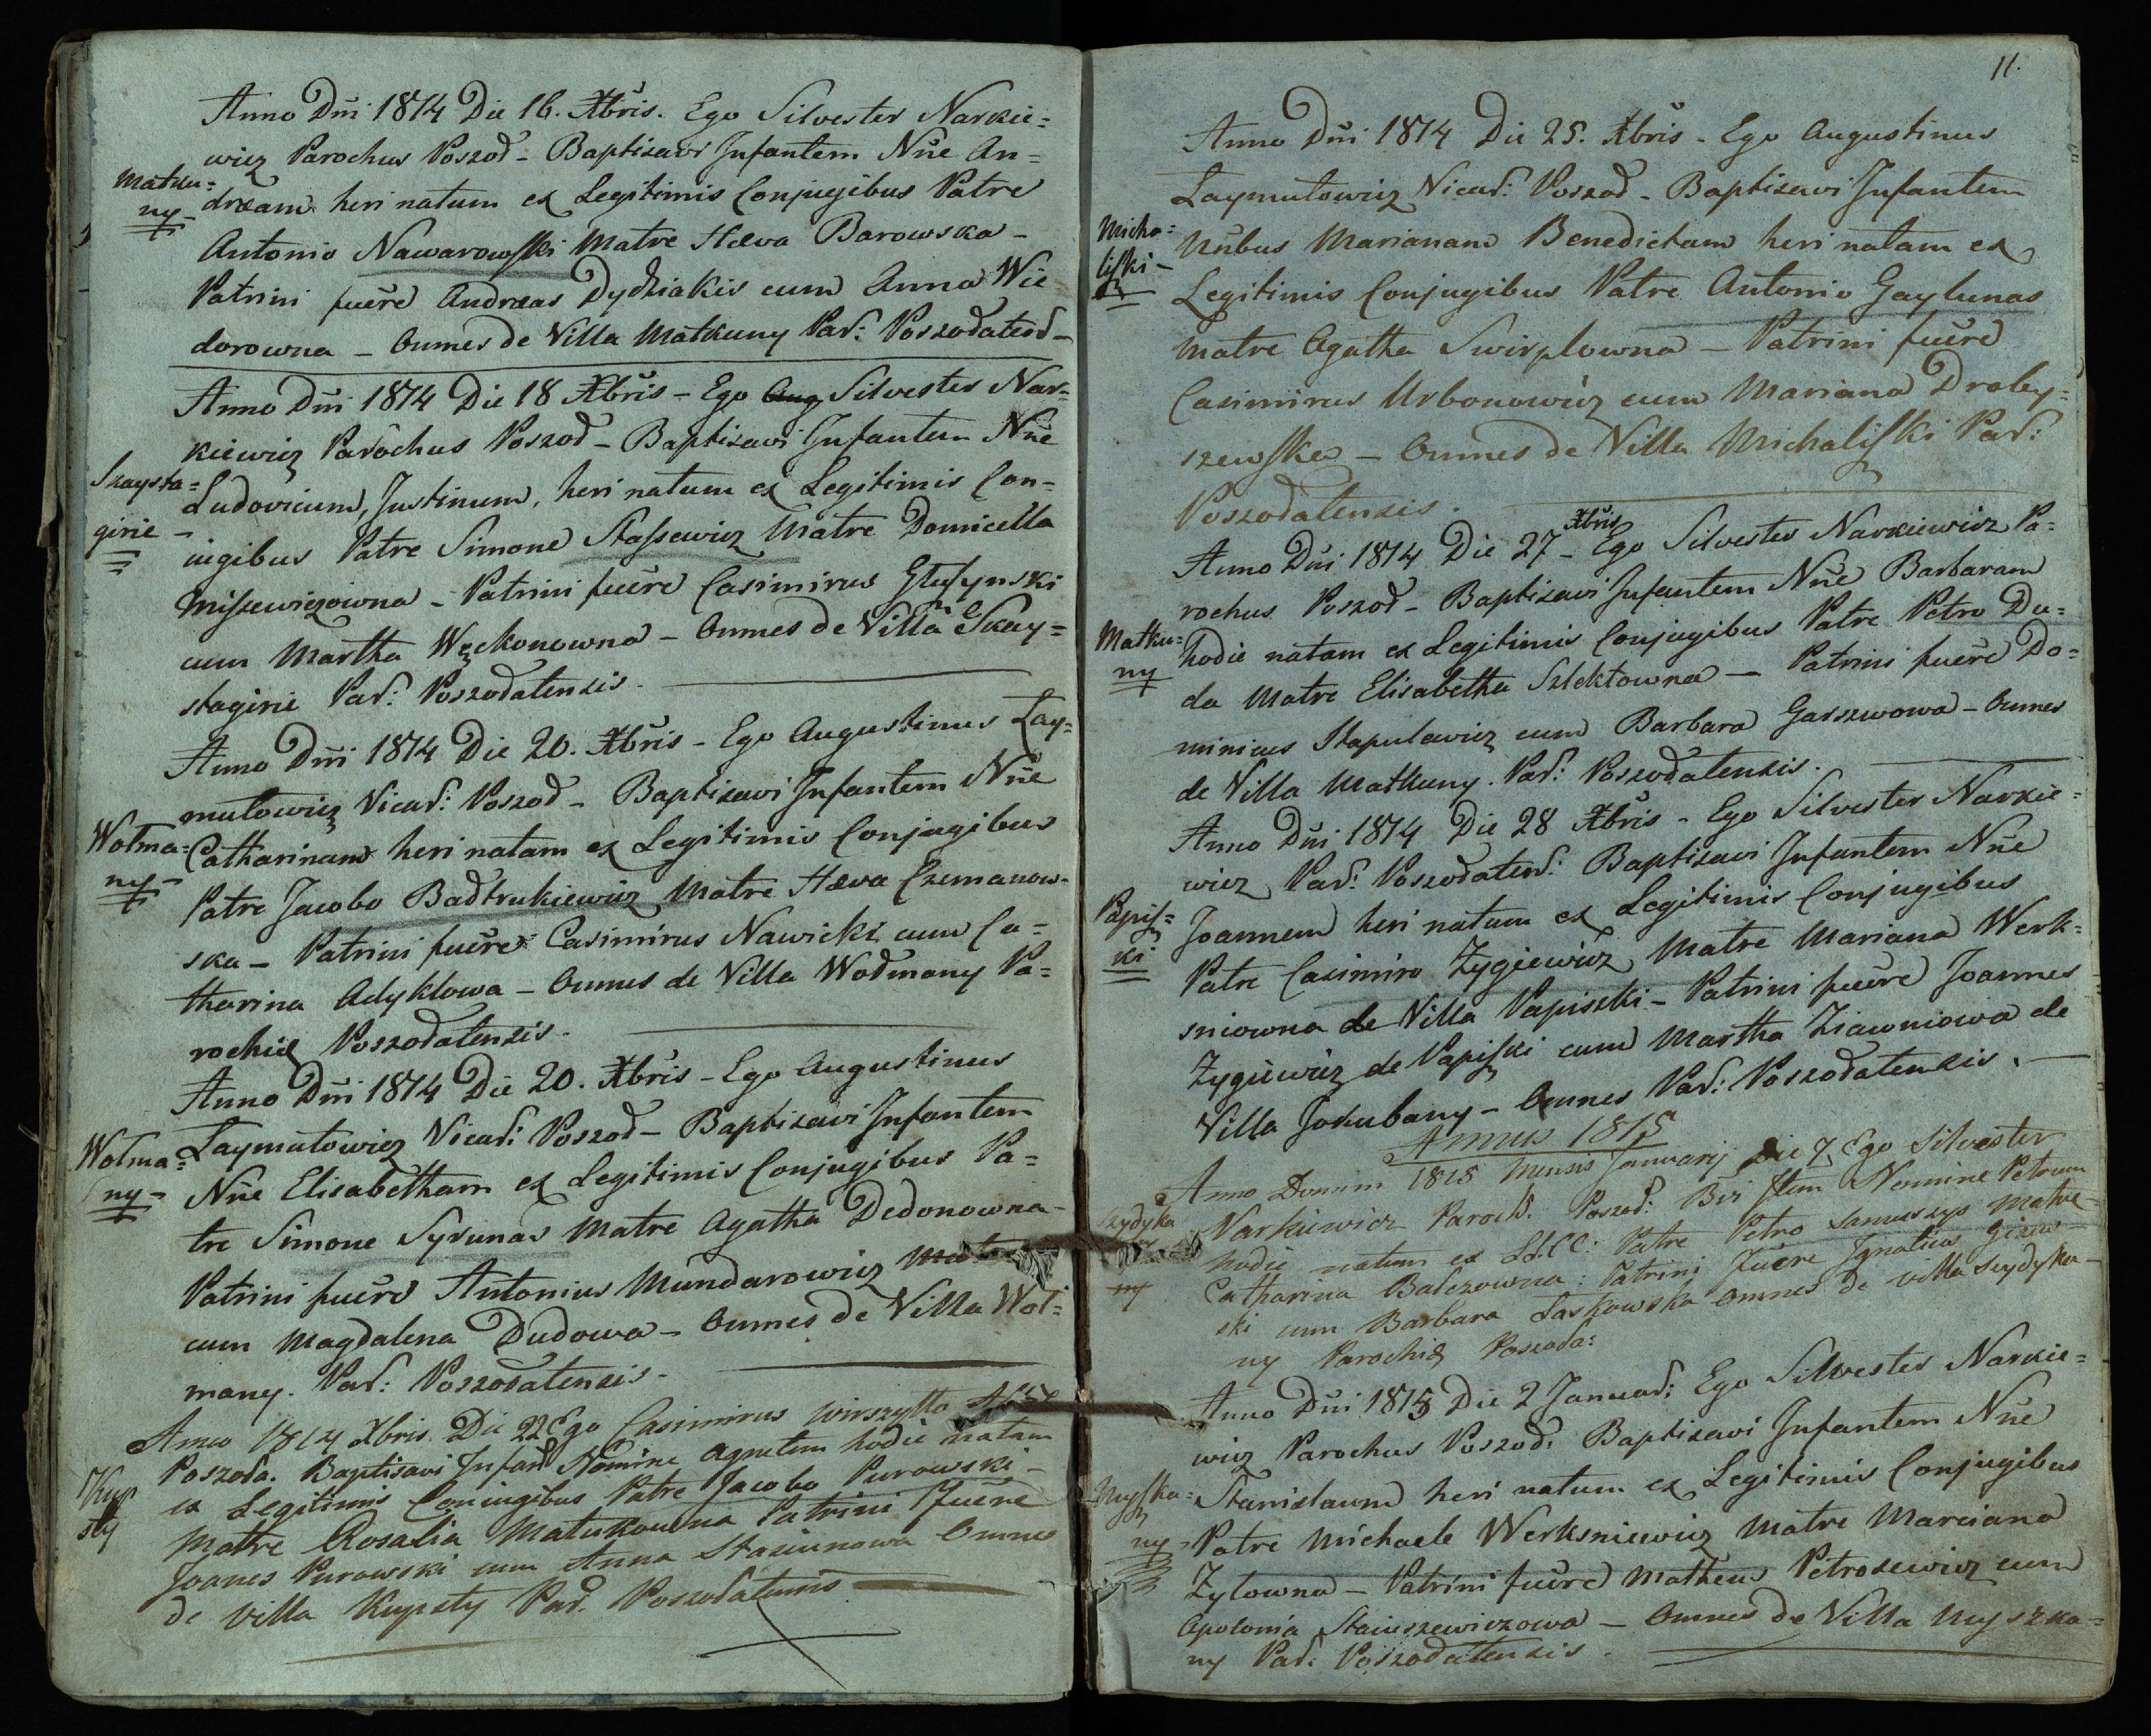 Anno Dni 1814 Die 16. Xbris. Ego Silvester Narkie=
wicz Parochus Poszod - Baptizavi Infantem Nne An=
Matku=
ny -
dream heri natum ex Legitimis Conjugibus Patre
Antonio Nawarowski Matre Hæva Barowska -
Patrini fuēre Andreas Dydziakis cum Anna Wie
dorowna - Omnes de Villa Matkuny Par: Poszodatens -
Anno Dni 1814 Die 18 Xbris - Ego Aug Silvester Nar=
kiewicz Parochus Poszod - Baptizavi Infantem Nne
Szaysta=
girie -
Ludovicum, Justinum, heri natum ex Legitimis Con=
iugibus Patre Simone Stassewicz Matre Domicella
Missewiczowna - Patrini fuēre Casimirus
cum Martha Węckonowna - Omnes de Villa Skay=
stagirie Par: Poszodatensis.
Anno Dni 1814 Die 20. Xbris - Ego Augustinus Lay=
mutowicz Vicar: Poszod - Baptizavi Infantem Nne
Wotma=
ny -
Catharinam heri natam ex Legitimis Conjugibus
Patre Jacobo Badtrukiewicz Matre Hæva Czemanow=
ska - Patrini fuēre Casimirus Nawicki cum Ca=
tharina Adyklowa - Omnes de Villa Wodmany Pa=
rochiæ Poszodatensis.
Anno Dni 1814 Die 20. Xbris - Ego Augustinus
Wotma=
ny -
Laymutowicz Vicar: Poszod - Baptizavi Infantem
Nne Elisabetham ex Legitimis Conjugibus Pa=
tre Simone Syrunas Matre Agatha Dedonowna -
Patrini fuēre Antonius Mundarowicz
cum Magdalena Dudowa - Omnes de Villa Wot=
many. Par: Poszodatensis.
Anno 1814 Xbris Die 22 Ego Casimirus Wirszyllo
Poszoda. Baptisavi Infan Nomine Agnetem hodie natam
Kup
sty
ex Legitimis Coniugibus Patre Jacobo Purowski -
Matre Rosalia Matukowna Patrini Fuēre
Joanes Purowski cum Anna Stasiunowa Omnes
de Villa Kupsty Par. Poszodatensis
11.
Anno Dni 1814 Die 25. Xbris - Ego Augustinus
Laymutowicz Vicar: Poszod - Baptizavi Infantem
Micha=
liski -
Nnbus Marianam Benedictam heri natam ex
Legitimis Conjugibus Patre Antonio Gaylunas
Matre Agatha Swirplowna - Patrini fuēre
Casimirus Urbonowicz cum Mariana Droby=
szewska - Omnes de Villa Michaliski Par:
Poszodatensis.
Anno Dni 1814 Die 27 - Xbris Ego Silvester Narkiewicz Pa=
rochus Poszod - Baptizavi Infantem Nne Barbaram
Matku=
ny
hodie natam ex Legitimis Conjugibus Patre Petro Du=
da Matre Elisabetha Szlektowna - Patrini fuēre Do=
minicus Stapulewicz cum Barbara Garszwowa - Omnes
de Villa Matkuny. Par: Poszodatensis.
Anno Dni 1814 Die 28 Xbris - Ego Silvester Narkie=
wicz Par: Poszodaten: Baptizavi Infantem Nne
Papisz=
ki
Joannem heri natum ex Legitimis Conjugibus
Patre Casimiro Zygiewicz Matre Mariana Werk=
sniowna de Villa Papiszki - Patrini fuēre Joannes
Zygiewicz de Papiski cum Martha Ziawniowa de
Villa Jokubany - Omnes Par: Poszodatensis.
Annus 1815
Anno Domini 1815 Mensis Januarij Die 7 Ego Silvester
Szydyka
ny
Narkiewicz Paroch. Poszod: Bzi Jtem Nomine Petrum
hodie natum ex LL.CC: Patre Petro Samuszys Matre
Catharina Balczowna: Patrini Fuēre Ignatius Gizew
ski cum Barbara Laskowska Omnes de Villa Szydyka
ny Parochiæ Poszoda:
Anno Dni 1815 Die 2 Januar: Ego Silvester Narkie=
wicz Parochus Poszod. Baptizavi Infantem Nne
Myszka=
ny
Stanislaum heri natum ex Legitimis Conjugibus
Patre Michaele Werksniewicz Matre Marciana
Zytowna - Patrini fuēre Matheus Petrosewicz cum
Apolonia Staniszewiczowa - Omnes de Villa Myszka=
ny Par: Poszodatensis.